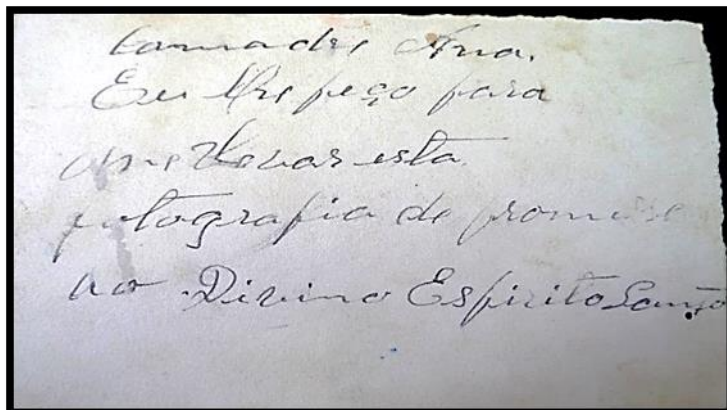 Comadre Ana.
Eu lhe peço para
me levar esta
fotografia de promese
ao Divino Espirito Santo